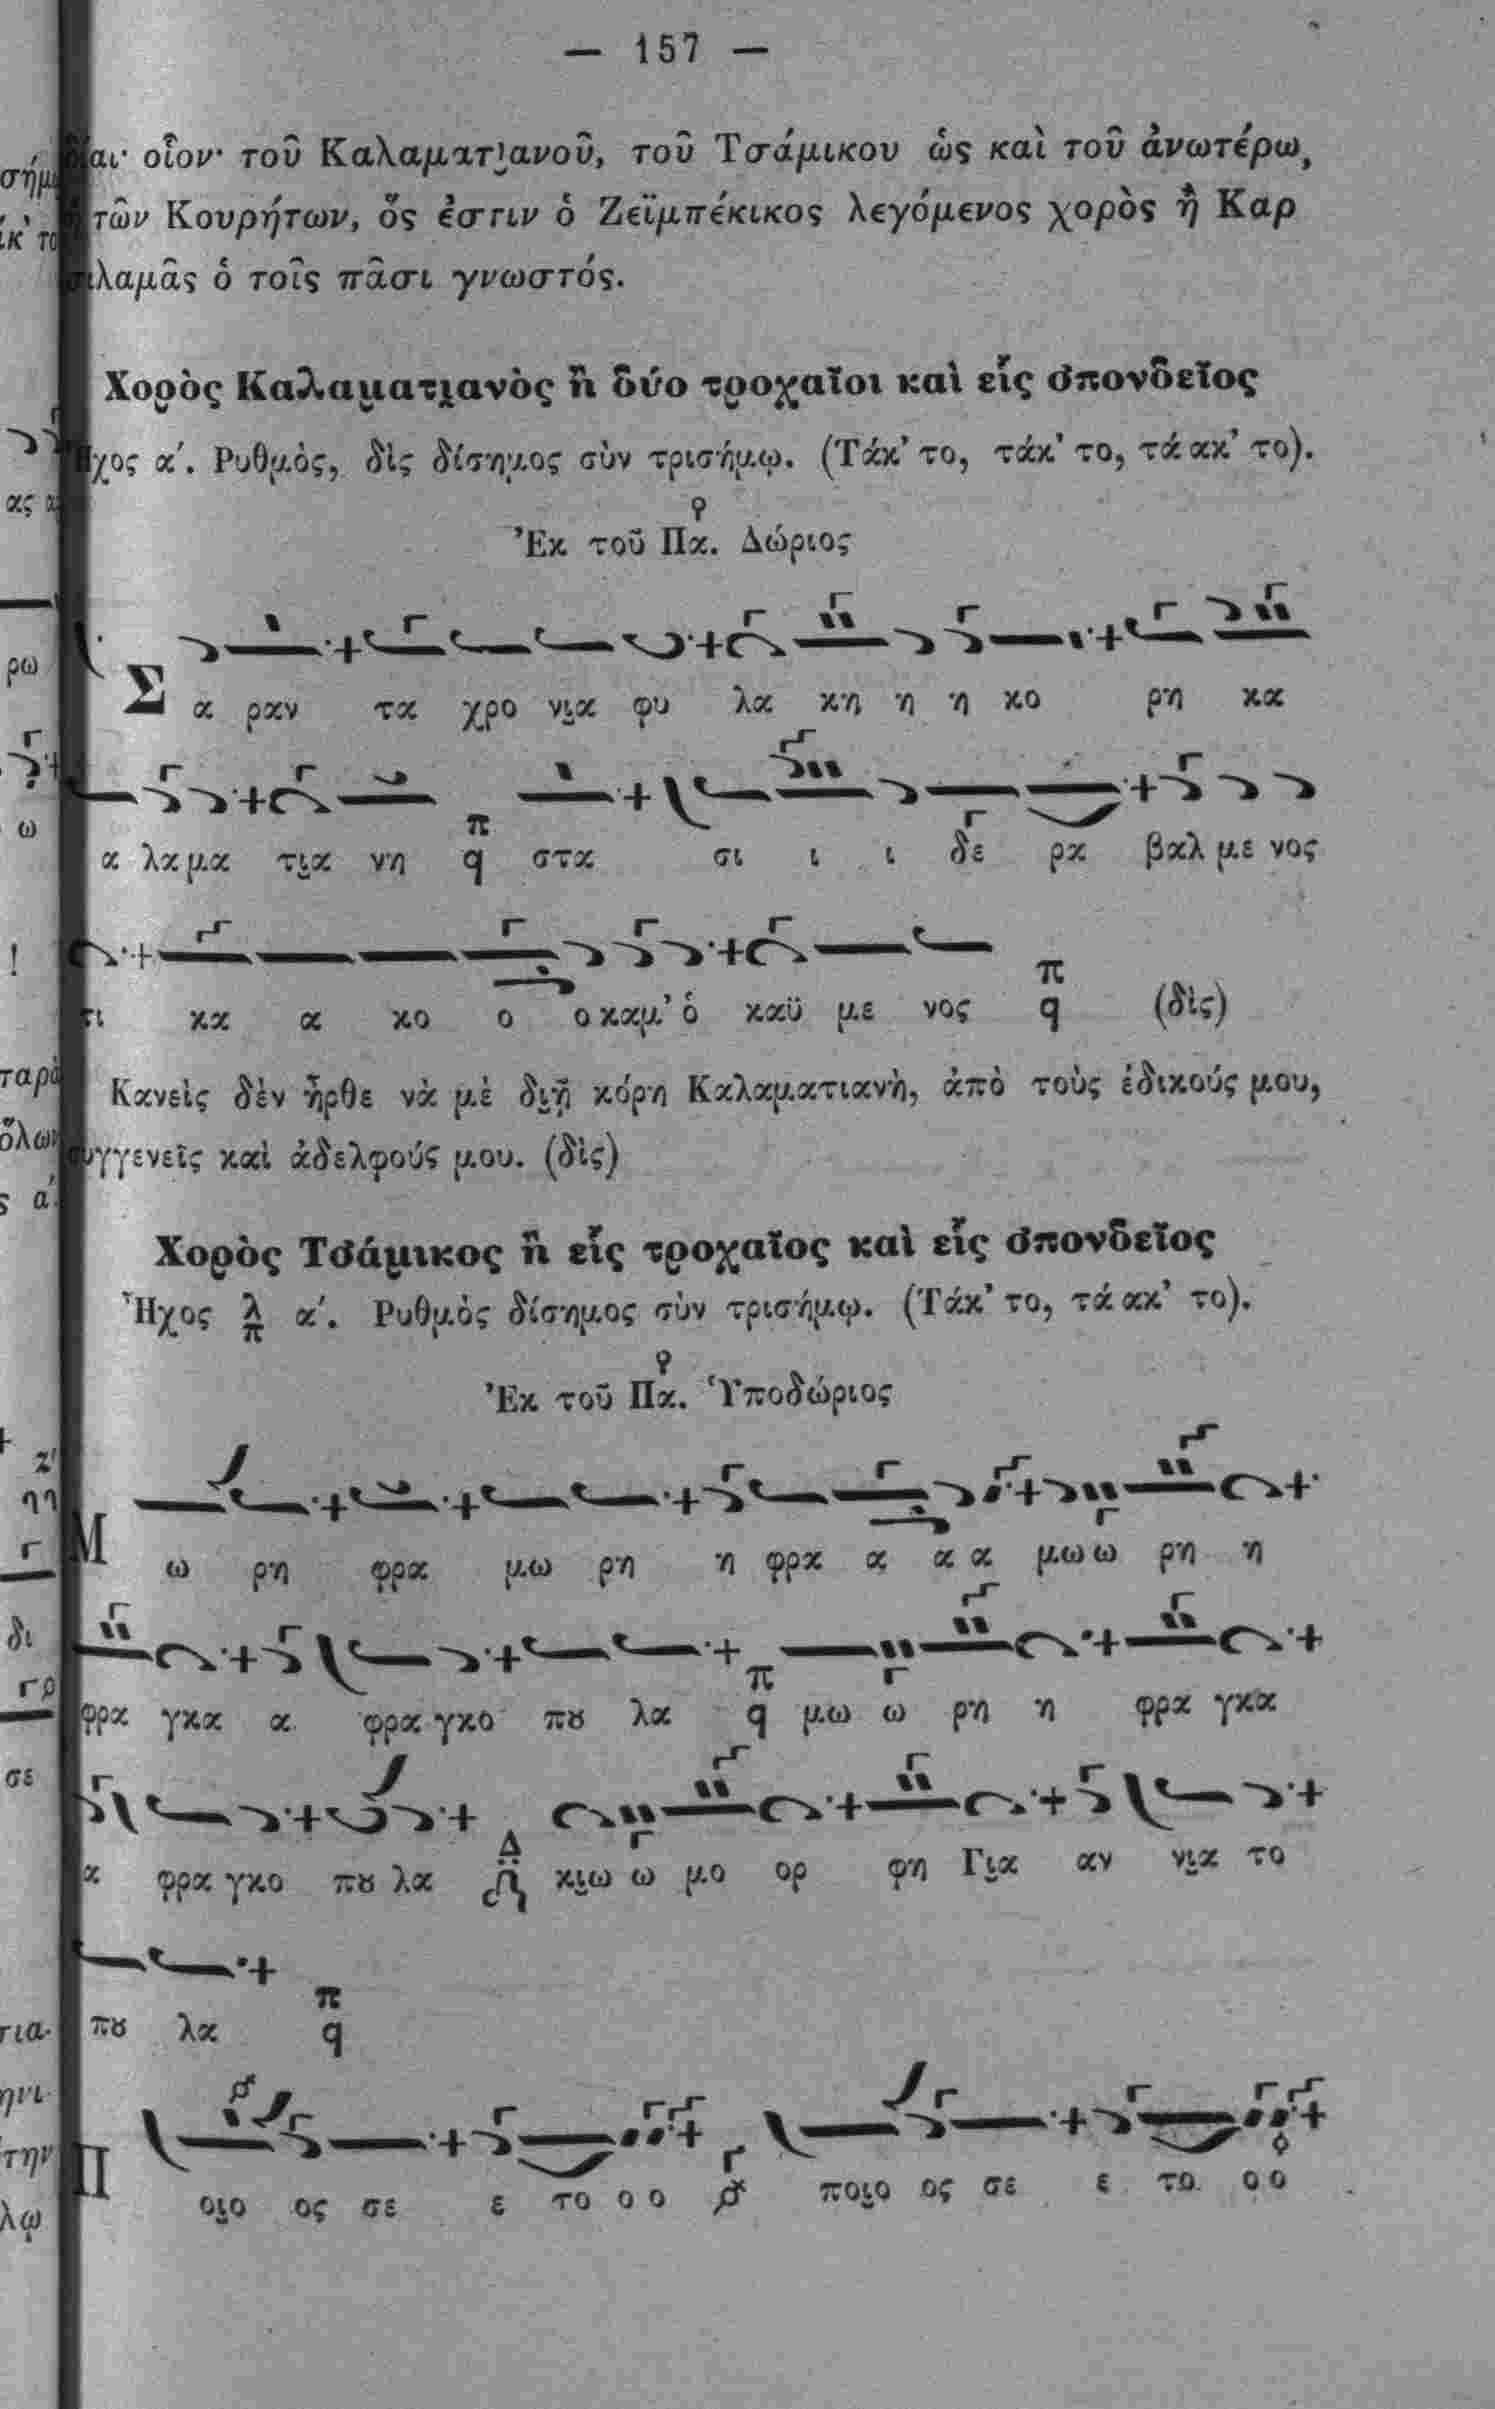 — 157 —
οἷον· τοῦ Καλαματιανοῦ, τοῦ Τσάμικου ὡς καὶ τοῦ ἀνωτέρω,
τῶν Κουρήτων, ὅς ἐστιν ὁ Ζεϊμπέκικος λεγόμενος χορὸς ἢ Καρ
σιλαμᾶς ὁ τοῖς πᾶσι γνωστός.
Χορὸς Καλαματιανὸς ἢ δύο τροχαῖοι καὶ εἷς σπονδεῖος
Ἦχος α΄. Ρυθμὸς, δὶς δίσημος σὺν τρισήμῳ. (Τάκ' το, τάκ' το, τά ακ' το).
Ἐκ τοῦ Πα. Δώριος
Σ α ραν τα χρο νια φυ λα κη η η κο ρη κα
α λα μα τια νη π q στα σι ι ι δε ρα βαλ με νος
τι κα α κο ο ο καμ' ὁ καϋ με νος π q (δὶς)
Κανεὶς δὲν ἦρθε νὰ μὲ διῇ κόρη Καλαματιανὴ, ἀπὸ τοὺς ἐδικούς μου,
συγγενεῖς καὶ ἀδελφούς μου. (δὶς)
Χορὸς Τσάμικος ἢ εἷς τροχαῖος καὶ εἷς σπονδεῖος
Ἦχος λ π α΄. Ρυθμὸς δίσημος σὺν τρισήμῳ. (Τάκ' το, τά ακ' το).
Ἐκ τοῦ Πα. Ὑποδώριος
Μ ω ρη φρα μω ρη η φρα α α α μω ω ρη η
φρα γκα α φρα γκο πȣ λα π q μω ω ρη η φρα γκα
α φρα γκο πȣ λα Δ κιω ω μο ορ φη Για αν νια το
πȣ λα π q
Π οιο ος σε ε το ο ο ποιο ος σε ε το ο ο